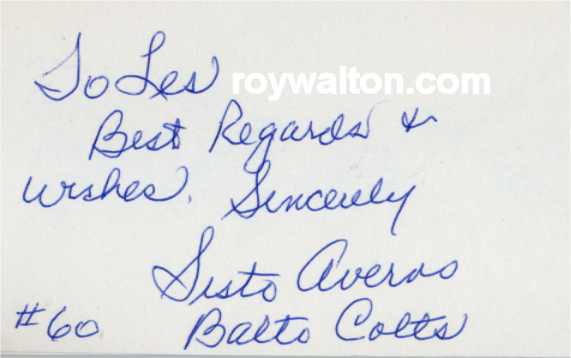 To Les
roywalton.com
Best Regards &
wishes. Sincerely
Sisto Averno
#60 Balto Colts